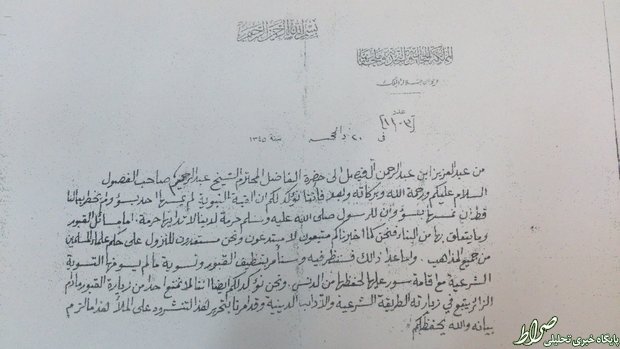 بسم الله الرحمن الرحيم
المملكة الحجازية النجدية وملحقاتها
ديوان جلالة الملك
عدد
[١١-٣]
في ٢٠ ذي الحجة سنة ١٣٤٥
من عبدالعزيز ابن عبدالرحمن آل فيصل الى حضرة الفاضل المحترم الشيخ عبدالرحيم صاحب الفصول
السلام عليكم ورحمة الله وبركاته وبعد فاننا نؤكد لكم ان القبة النبوية لم يمسها احد بسوء ولم يخطر ببالنا
قط ان نمسها بسوء وان للرسول صلى الله عليه وسلم حرمة لدينا لا تدانيها حرمة، اما مسائل القبور
وما يتعلق بها من البناء فنحن كما اخبرناكم متبعون لا مبتدعون ونحن مستعدون للنزول على حكم علماء المسلمين
من جميع المذاهب. ولما عدا ذلك فسننظر فيه وسنأمر بتنظيف القبور وتسوية ما لم يسو منها التسوية
الشرعية مع اقامة سور عليها لحفظها من الدنس. ونحن نؤكد لكم ايضا اننا لا نمنع احدا من زيارة القبور ما دام
الزائر يتبع في زيارته الطريقة الشرعية والآداب الدينية وقد امرنا بتحرير لهذا لتنشروه على الملأ لهذا ما لزم
بيانه والله يحفظكم
صراط
پایگاه خبری تحلیلی